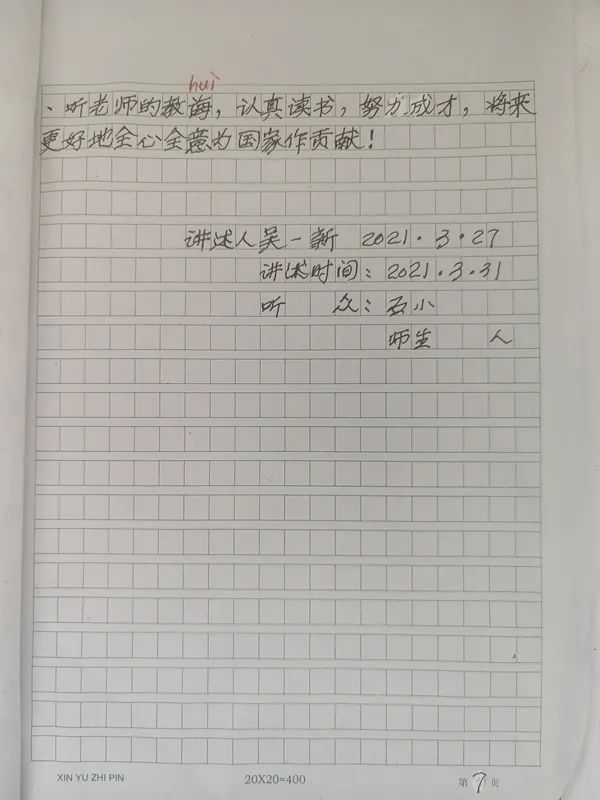 hui
、听老师的教诲，认真读书，努力成才，将来
更好地全心全意为国家作贡献！
讲述人吴一新 2021.3.27
讲述时间：2021.3.31
听 众：石小
师生 人
XIN YU ZHI PIN 20X20=400 第7页